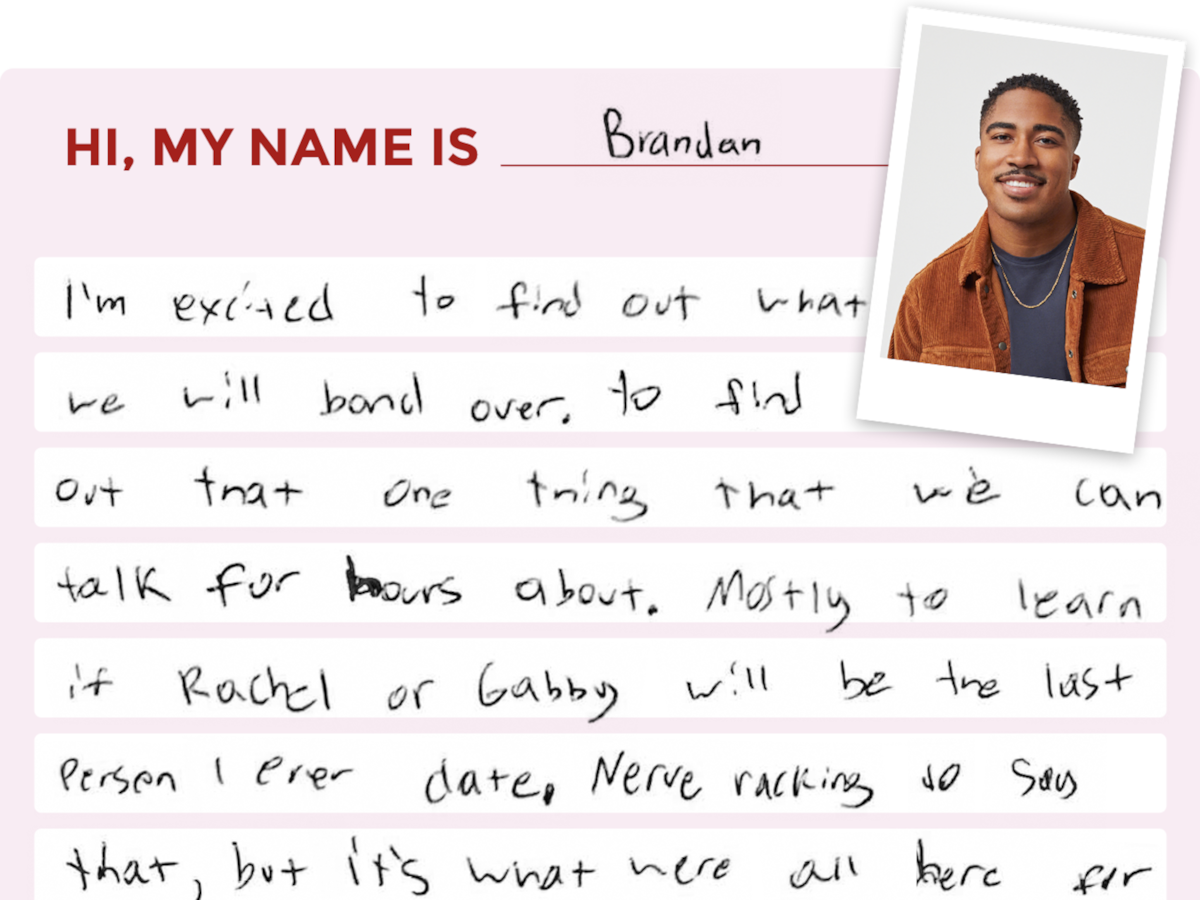 HI, MY NAME IS Brandan
I'm excited to find out what
we will bond over. to find
out that one thing that we can
talk for hours about. Mostly to learn
if Rachel or Gabby will be the last
person I ever date. Nerve racking to say
that, but it's what were all here for